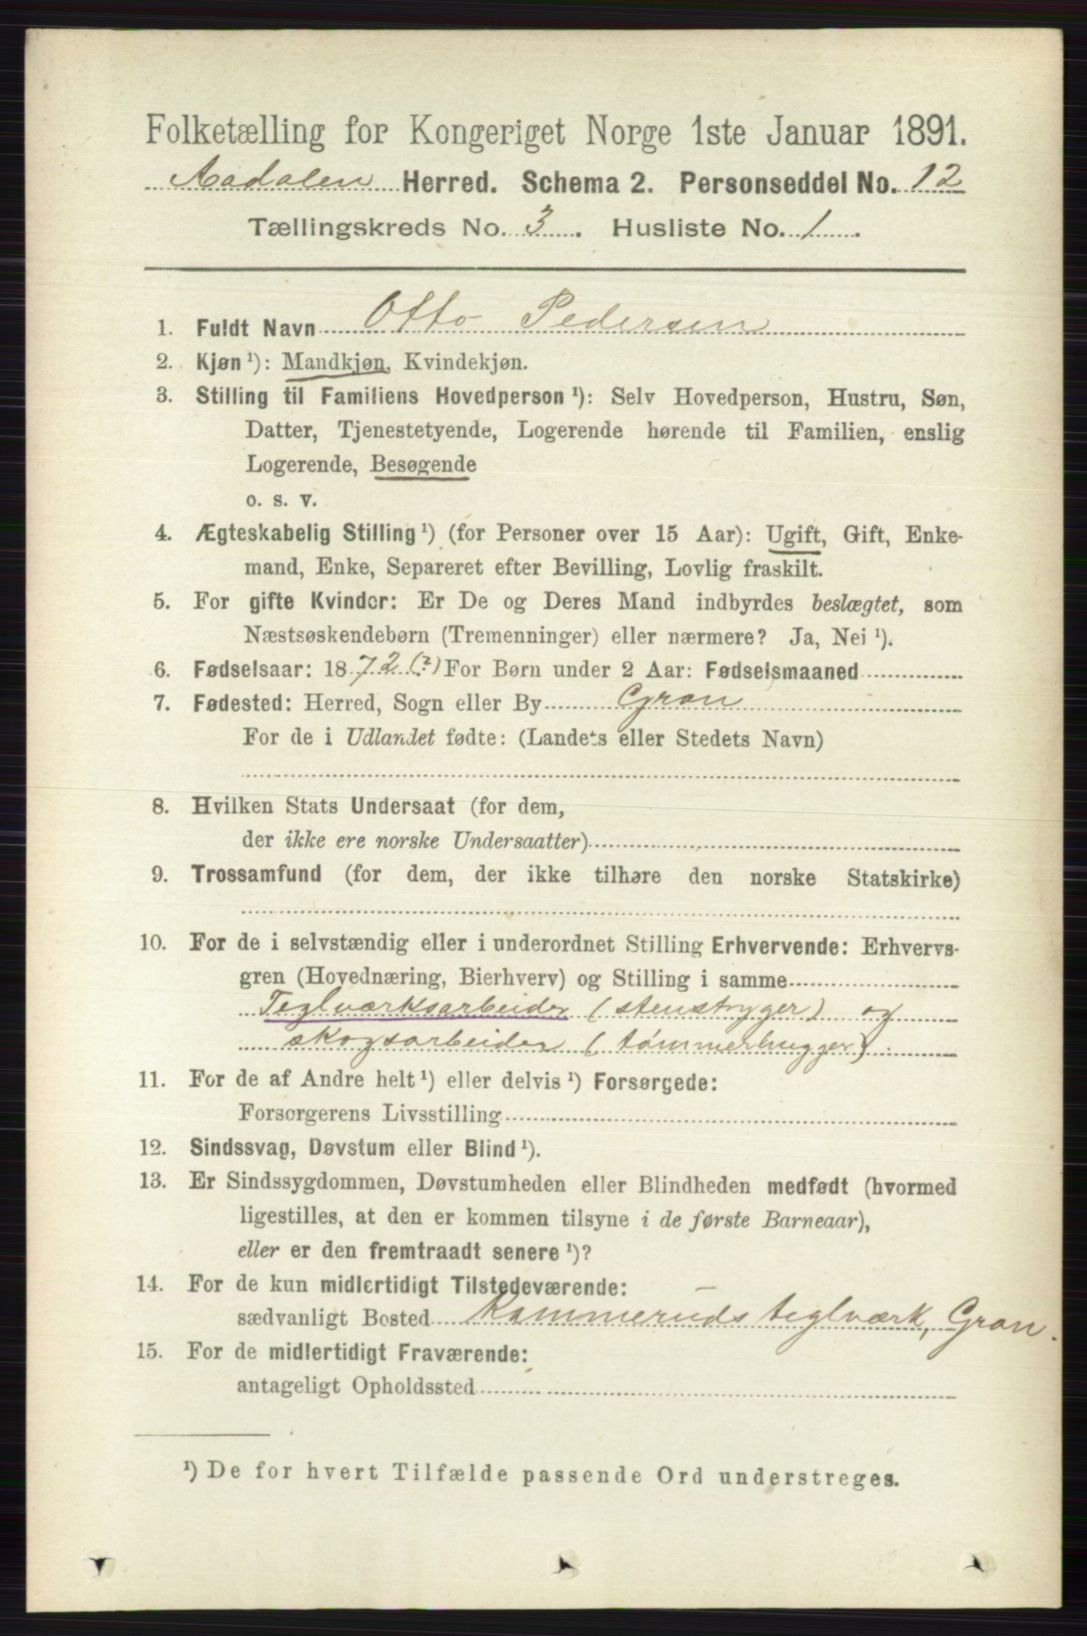 Folketælling for Kongeriget Norge 1ste Januar 1891.
Aadalen Herred. Schema 2. Personseddel No. 12
Tællingskreds No. 3. Husliste No. 1.
1. Fuldt Navn Otto Pedersen
2. Kjøn ¹): Mandkjøn, Kvindekjøn.
3. Stilling til Familiens Hovedperson ¹): Selv Hovedperson, Hustru, Søn,
Datter, Tjenestetyende, Logerende hørende til Familien, enslig
Logerende, Besøgende
o. s. v.
4. Ægteskabelig Stilling ¹) (for Personer over 15 Aar): Ugift, Gift, Enke-
mand, Enke, Separeret efter Bevilling, Lovlig fraskilt.
5. For gifte Kvinder: Er De og Deres Mand indbyrdes beslægtet, som
Næstsøskendebørn (Tremenninger) eller nærmere? Ja, Nei ¹).
6. Fødselsaar: 1872 (?) For Børn under 2 Aar: Fødselsmaaned
7. Fødested: Herred, Sogn eller By Gran
For de i Udlandet fødte: (Landets eller Stedets Navn)
8. Hvilken Stats Undersaat (for dem,
der ikke ere norske Undersaatter)
9. Trossamfund (for dem, der ikke tilhøre den norske Statskirke)
10. For de i selvstændig eller i underordnet Stilling Erhvervende: Erhvervs-
gren (Hovednæring, Bierhverv) og Stilling i samme
Teglværksarbeider (stenstryger) og
skogsarbeider (tømmerhugger)
11. For de af Andre helt ¹) eller delvis ¹) Forsørgede:
Forsørgerens Livsstilling
12. Sindssvag, Døvstum eller Blind ¹).
13. Er Sindssygdommen, Døvstumheden eller Blindheden medfødt (hvormed
ligestilles, at den er kommen tilsyne i de første Barneaar),
eller er den fremtraadt senere ¹)?
14. For de kun midlertidigt Tilstedeværende:
sædvanligt Bosted Kammeruds teglværk, Gran.
15. For de midlertidigt Fraværende:
antageligt Opholdssted
¹) De for hvert Tilfælde passende Ord understreges.